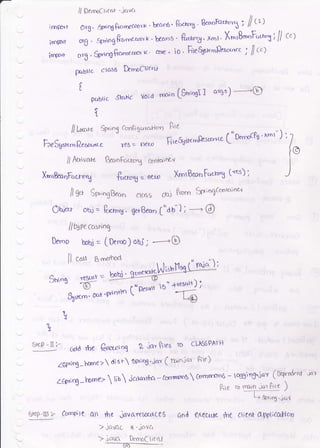 // DemoClient.java
import org.springframework.beans.factory.BeanFactory; // (c)
import org.springframework.beans.factory.xml.XmlBeanFactory; // (c)
import org.springframework.core.io.FileSystemResource; // (c)
public class DemoClient
{
public static void main(String[] args) → (b)
{
// Locate Spring Configuration File
FileSystemResource res = new FileSystemResource("DemoCfg.xml");
(c)
// Activate BeanFactory container
XmlBeanFactory factory = new XmlBeanFactory(res);
// get SpringBean class obj from SpringContainer
Object obj = factory.getBean("db"); → (d)
// type casting
Demo bobj = (Demo) obj; → (k)
// call B.method
String result = bobj.generateWishMsg("raja");
System.out.println("Result is " + result);
}
}
Step-II:- add the following 2 jar files to CLASSPATH
<spring_home>\dist\spring.jar (main jar file)
<spring_home>\lib\jakarta-commons\commons-logging.jar (Dependent jar
file to main jar file)
↳ spring.jar
Step-III:- Compile all the java resources and execute the client application
> javac *.java
> java DemoClient